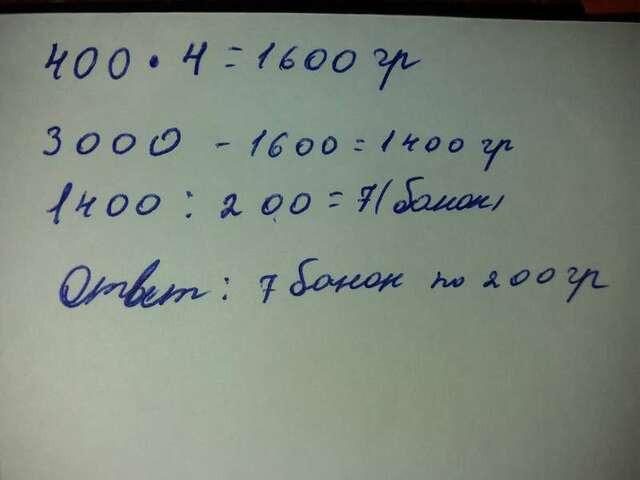 400 • 4 = 1600 гр
3000 - 1600 = 1400 гр
1400 : 200 = 7 (банок)
Ответ: 7 банок по 200 гр